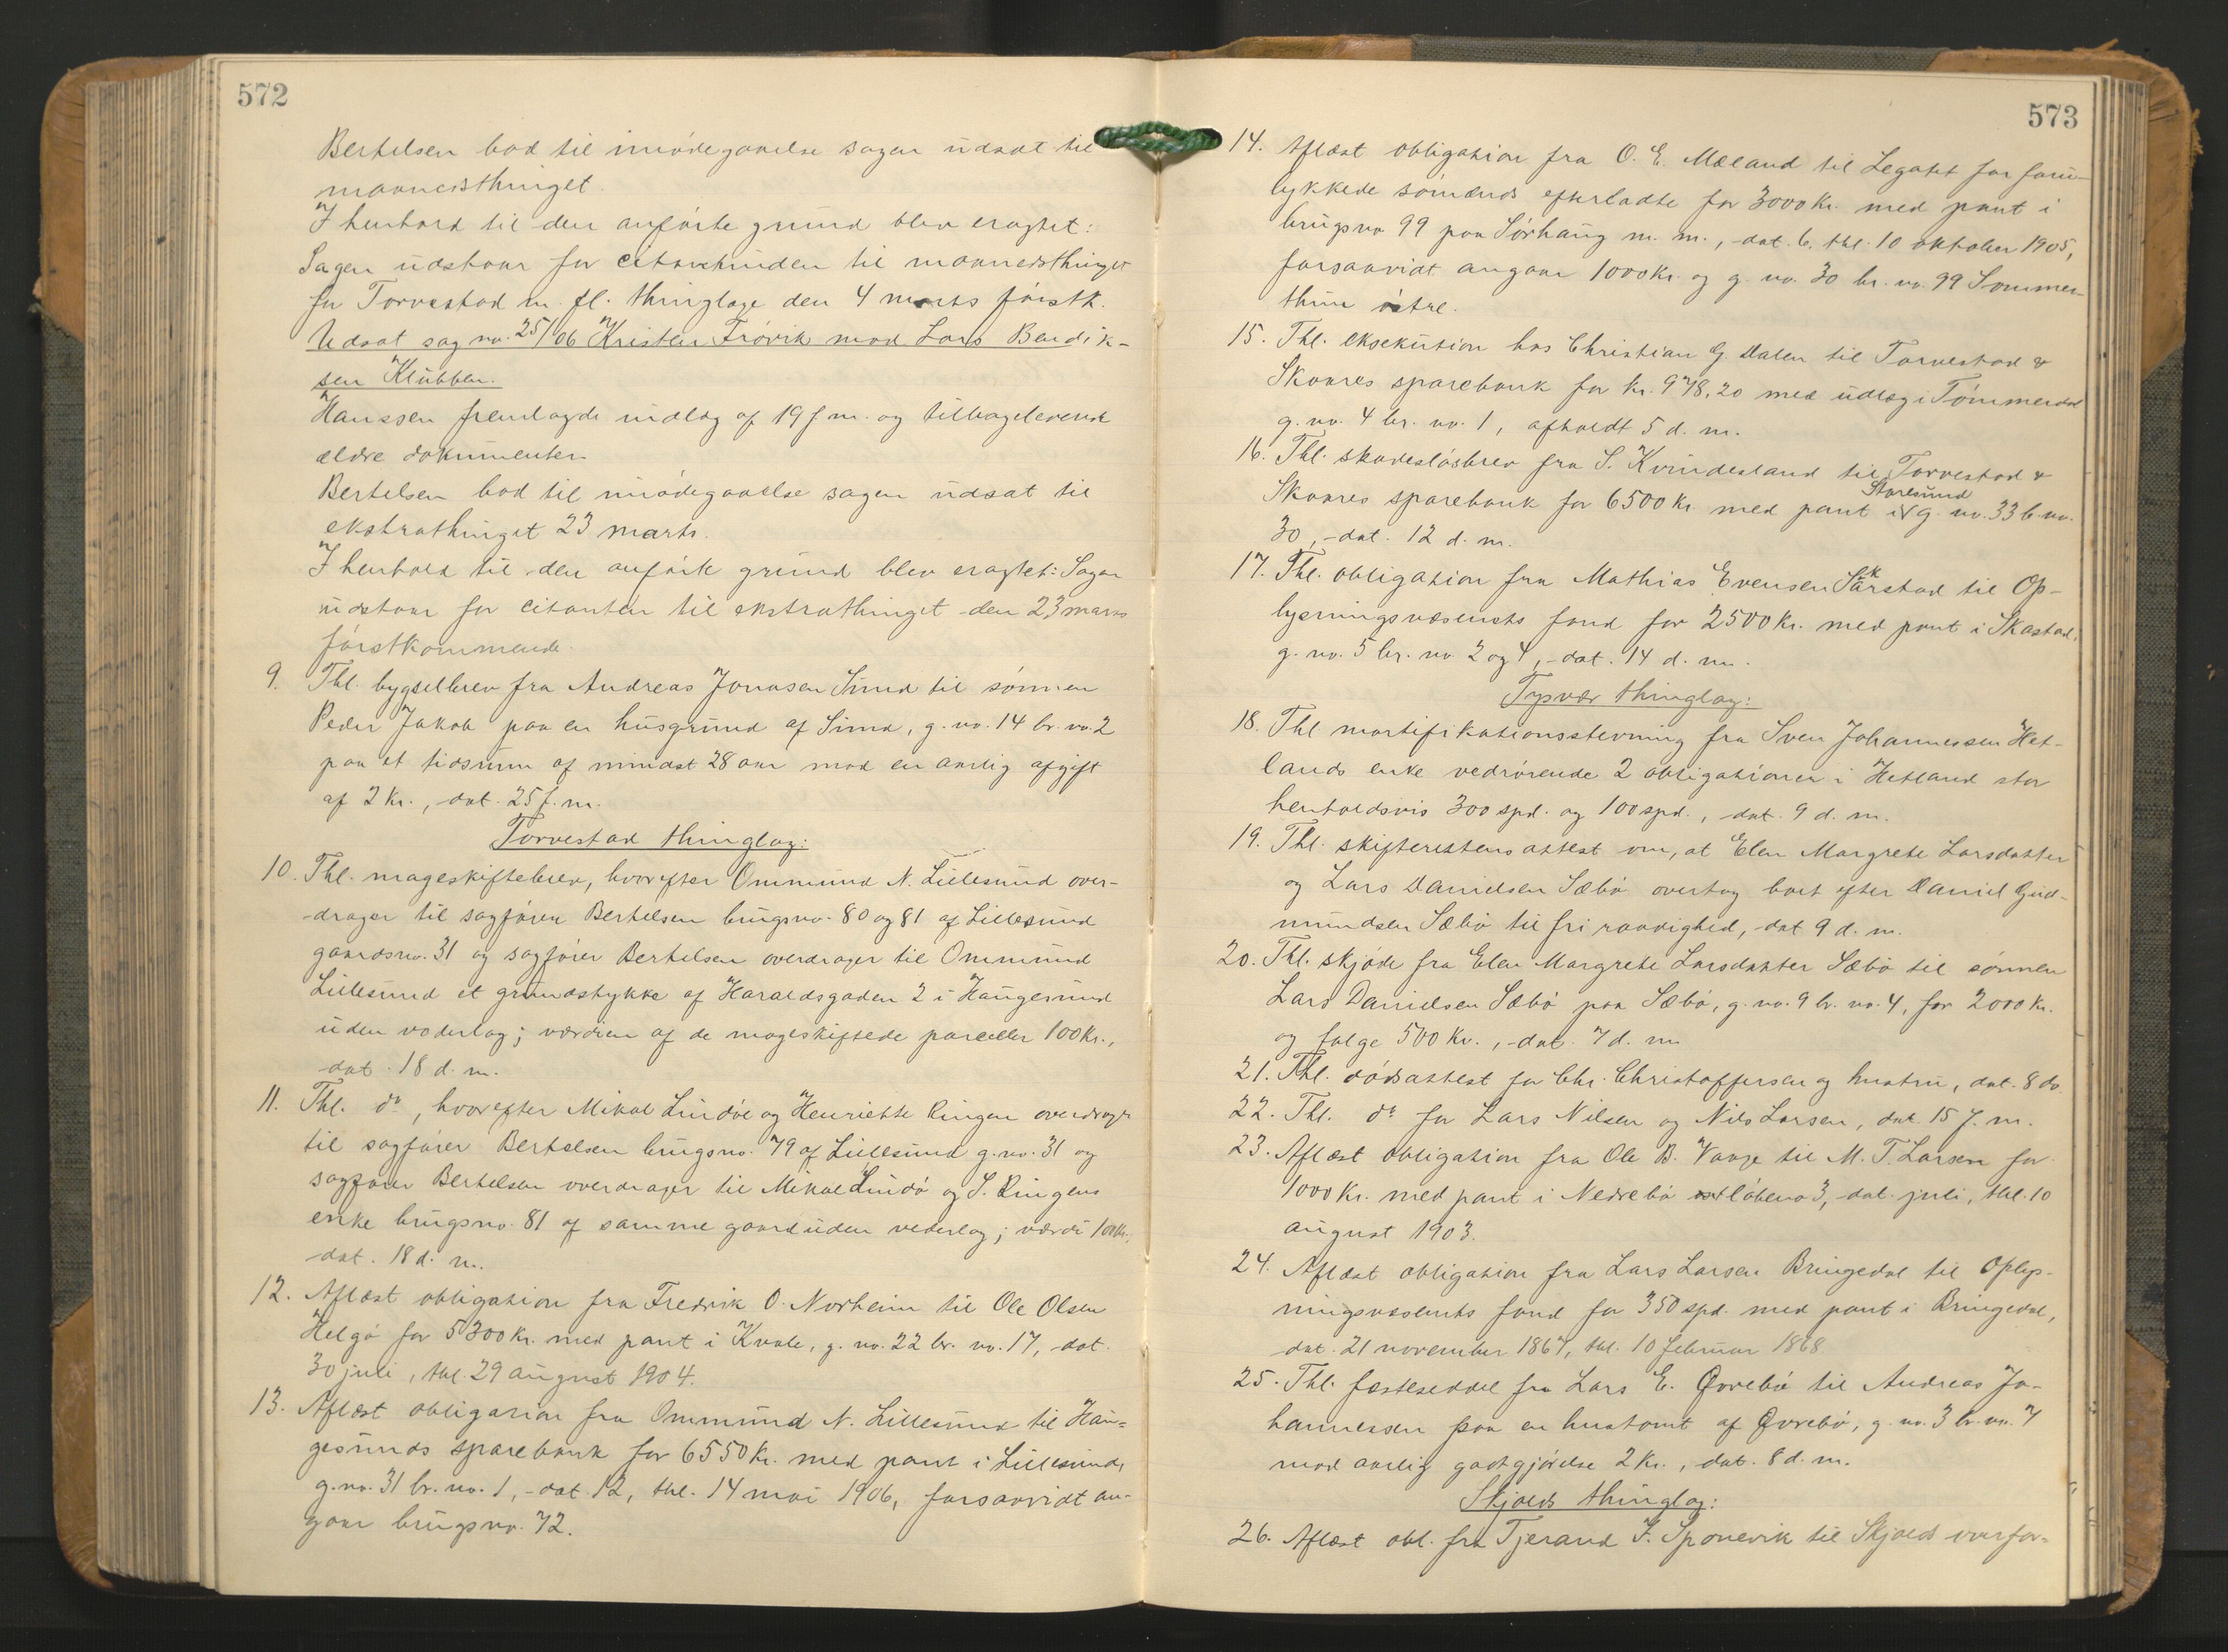 572
Bertelsen bad til imødegaaelse sagen udsat til
maanedsthinget.
I henhold til den anførte grund blev eragtet:
Sagen udstaar for citantinden til maanedsthinget
for Torvestad m. fl. thinglage den 4 marts førstk.
Udsat sag no. 25/06 Kristen Frøvik mod Lars Bendik-
sen Klubben.
Hanssen fremlagde indlæg af 19 f. m. og tilbageleverede
ældre dokumenter.
Bertelsen bad til imødegaaelse sagen udsat til
ekstrathinget 23 marts.
I henhold til den anførte grund blev eragtet: Sagen
udstaar for citanten til ekstrathinget den 23 marts
førstkommende.
9. Thl. bygselbrev fra Andreas Jonasen Sund til sønnen
Peder Jakob paa en husgrund af Sund, g. no. 14 br. no. 2
paa et tidsrum af mindst 28 aar mod en aarlig afgift
af 2 kr., dat. 25 f. m.
Torvestad thinglag:
10. Thl. mageskiftebrev, hvorefter Ommund N. Lillesund over-
drager til sagfører Bertelsen brugsno. 80 og 81 af Lillesund
gaardsno. 31 og sagfører Bertelsen overdrager til Ommund
Lillesund et grundstykke af Haraldsgaden 2 i Haugesund
uden vederlag; værdien af de mageskiftede parceller 100 kr.,
dat. 18 d. m.
11. Thl. do, hvorefter Mikal Lindøe og Henriette Ringen overdrager
til sagfører Bertelsen brugsno. 79 af Lillesund g. no. 31 og
sagfører Bertelsen overdrager til Mikael Lindø og S. Ringens
enke brugsno. 81 af samme gaard uden vederlag; værdi 100 kr.,
dat. 18 d. m.
12. Aflæst obligation fra Fredrik O. Norheim til Ole Olsen
Helgø for 5300 kr. med pant i Kvale, g. no. 22 br. no. 17, dat.
30 juli, thl. 29 august 1904.
13. Aflæst obligation fra Ommund N. Lillesund til Hau-
gesunds sparebank for 6550 kr. med pant i Lillesund,
g. no. 31 br. no. 1, dat. 12, thl. 14 mai 1906, forsaavidt an-
gaar brugsno. 72.
573
14. Aflæst obligation fra O. E. Mæland til Legatet for foru-
lykkede sømænds efterladte for 3000 kr. med pant i
brugsno 99 paa Sørhaug m. m., dat. 6. thl. 10 oktober 1905,
forsaavidt angaar 1000 kr. og g. no. 30 br. no. 99 Sommer-
thun østre.
15. Thl. eksekution hos Christian G. Dalen til Torvestad &
Skaares sparebank for kr. 978,20 med udlæg i Tømmerdal
g. no. 4 br. no. 1, afholdt 5 d. m.
16. Thl. skadesløsbrev fra S. Kvindesland til Torvestad &
Skaares sparebank for 6500 kr. med pant i Storesund g. no. 33 b. no.
30, dat. 12 d. m.
17. Thl. obligation fra Mathias Evensen Skarstad til Op-
lysningsvæsenets fond for 2500 kr. med pant i Skastad,
g. no. 5 br. no. 2 og 4, dat. 14 d. m.
Tysvær thinglag:
18. Thl mortifikationsstevning fra Sven Johannessen Het-
lands enke vedrørende 2 obligationer i Hetland stor
henholdsvis 300 spd. og 100 spd., dat. 9 d. m.
19. Thl. skifterettens attest om, at Elen Margrete Larsdatter
og Lars Danielsen Sæbø overtog boet efter Daniel Gud-
mundsen Sæbø til fri raadighed, dat 9 d. m.
20. Thl. skjøde fra Elen Margrete Larsdatter Sæbø til sønnen
Lars Danielsen Sæbø paa Sæbø, g. no. 9 br. no. 4, for 2000 kr.
og følge 500 kr., dat. 7 d. m.
21. Thl. dødsattest for Chr. Christoffersen og hustru, dat. 8 do.
22. Thl. do for Lars Nilsen og Nils Larsen, dat. 15 f. m.
23. Aflæst obligation fra Ole B. Vaage til M. T. Larsen for
1000 kr. med pant i Nedrebø løbeno 3, dat. juli, thl. 10
august 1903.
24. Aflæst obligation fra Lars Larsen Bringedal til Oplys-
ningsvæsenets fond for 350 spd. med pant i Bringedal,
dat. 21 november 1867, thl. 10 februar 1868.
25. Thl. fæsteseddel fra Lars E. Øvrebø til Andreas Jo-
hannessen paa en hustomt af Øvrebø, g. no. 3 br. no. 7
mod aarlig godtgjørelse 2 kr., dat. 8 d. m.
Skjolds thinglag:
26. Aflæst obl. fra Tjerand I. Sponevik til Skjolds overfor-